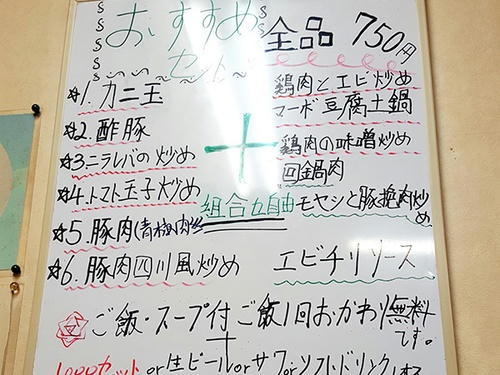 おすすめ
セット
全品 750円
☆1. カニ玉
☆2. 酢豚
☆3. ニラレバの炒め
☆4. トマト玉子炒め
☆5. 豚肉(青梅肉絲
☆6. 豚肉四川風炒め
+
組合自由
鶏肉とエビ炒め
マーボ豆腐土鍋
鶏肉の味噌炒め
回鍋肉
モヤシと豚挽肉炒
め
エビチリソース
ご飯・スープ付 ご飯1回おかわり無料
です。
+
or生ビールorサワorソフトドリンク